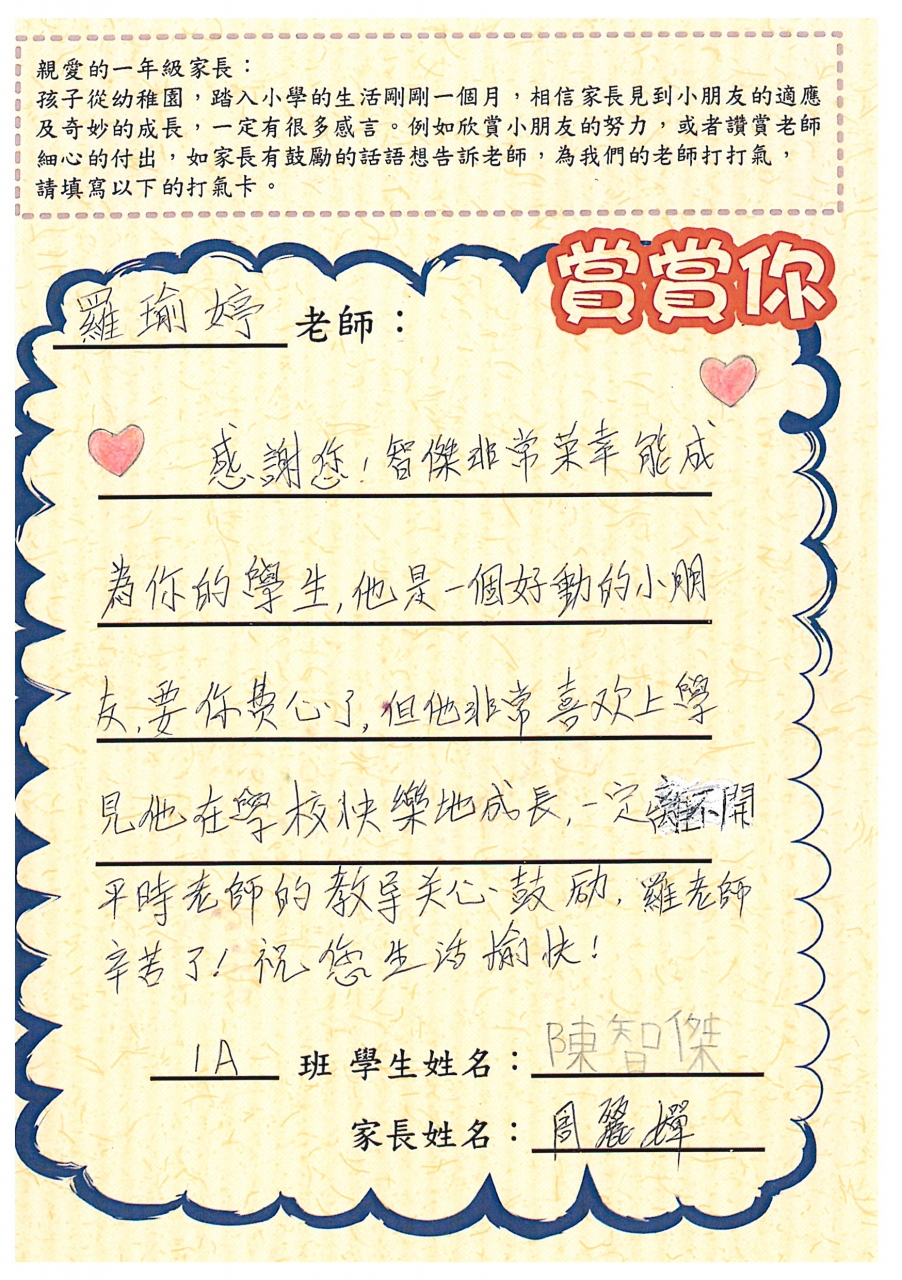 親愛的一年級家長：
孩子從幼稚園，踏入小學的生活剛剛一個月，相信家長見到小朋友的適應
及奇妙的成長，一定有很多感言。例如欣賞小朋友的努力，或者讚賞老師
細心的付出，如家長有鼓勵的話語想告訴老師，為我們的老師打打氣，
請填寫以下的打氣卡。
賞賞你
羅瑜婷 老師：
感謝您！智傑非常荣幸能成
為你的學生,他是一個好動的小朋
友,要你费心了,但他非常喜欢上學
見他在學校快樂地成長,一定離不開
平時老師的教导关心鼓励,羅老師
辛苦了！祝您生活愉快！
1A 班 學生姓名：陳智傑
家長姓名：周麗嬋